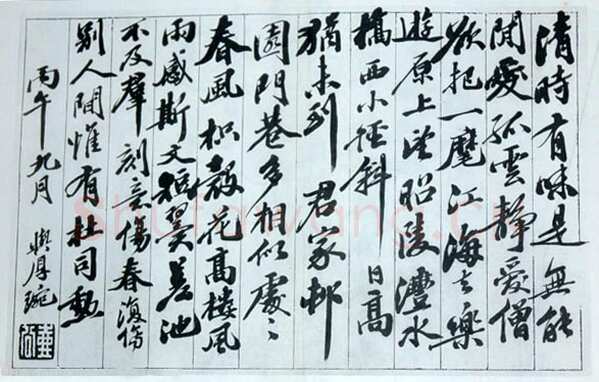 清時有味是無能
閒愛孤雲靜愛僧
欲把一麾江海去樂
遊原上望昭陵灃水
橋西小徑斜日高
猶未到君家邨
園門巷多相似處〻
春風枳殼花高樓風
雨感斯文短翼差池
不及羣刻意傷春復傷
別人間惟有杜司勳
丙午九月